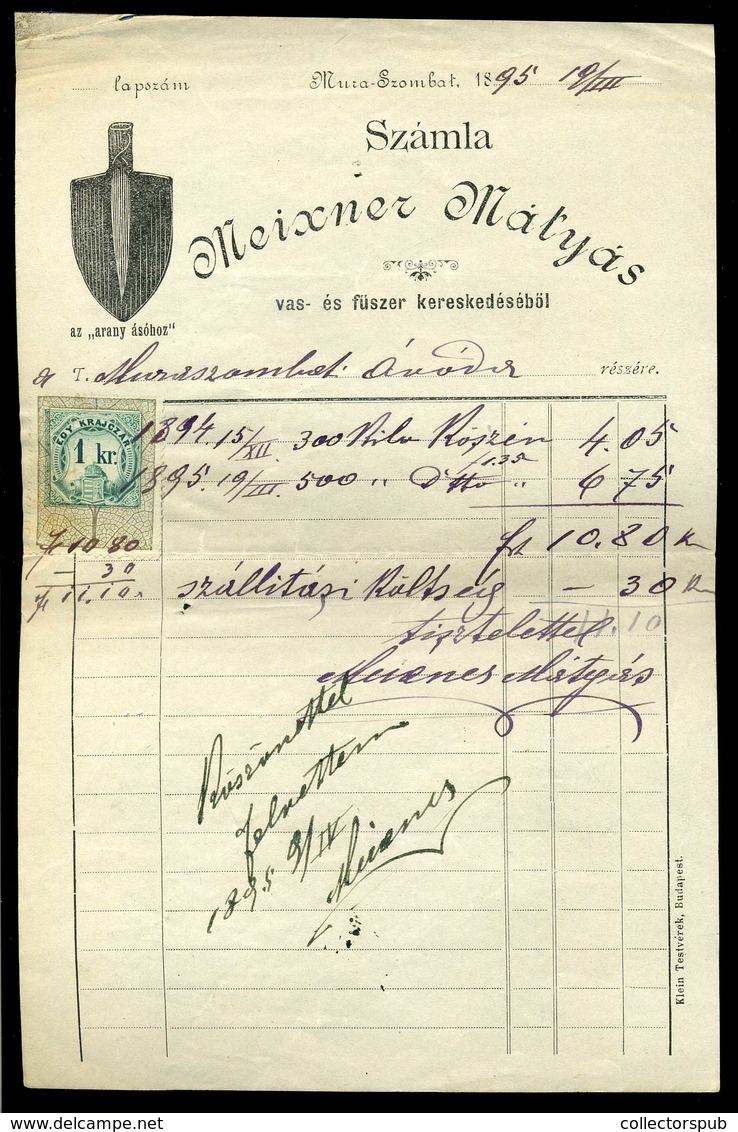 lapszám
Mura-Szombat, 1895 19/III
Számla
Meixner Mátyás
vas- és fűszer kereskedéséből
az „arany ásóhoz"
a T. Muraszombati Óvóda részére.
EGY KRAJCZÁR
1 kr.
1894 15/XII. 300 Kilo Kőszén 4.05
1895. 19/III. 500 „ dtto 1.35 „ 6 75
frt 10.80 Kr
10 80
— 30
11.10
szállitási Költség — 30 Kr
11.10
tisztelettel
Meixner Mátyás
Köszönettel
felvettem
1895 9/IV
Meixner
Klein Testvérek, Budapest.
collectorspub